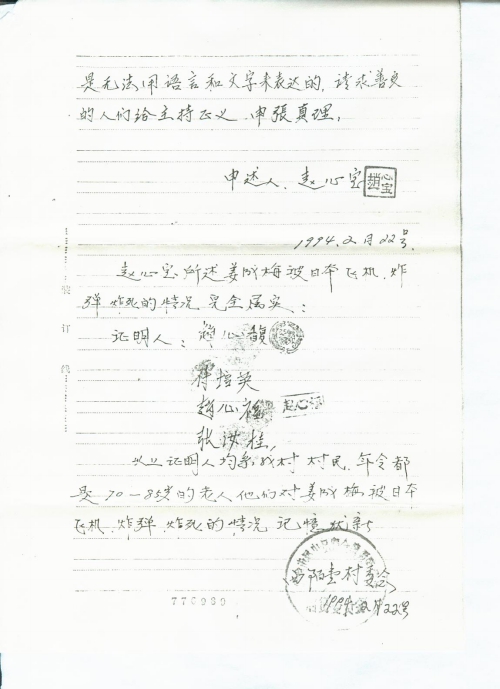 是无法用语言和文字来表达的，请求善良
的人们给主持正义、申張真理。
申述人、赵心宝
趙心宝
1994.2月22号.
赵心宝所述姜成梅被日本飞机、炸
弹炸死的情况完全属实：
装
订
线
证明人：赵心馥
符培英
赵心福
张洪桂，
以上证明人均系我村村民，年令都
是70-85岁的老人他们对姜成梅被日本
飞机、炸弹、炸死的情况记憶犹新
村委会
1994.2月22号